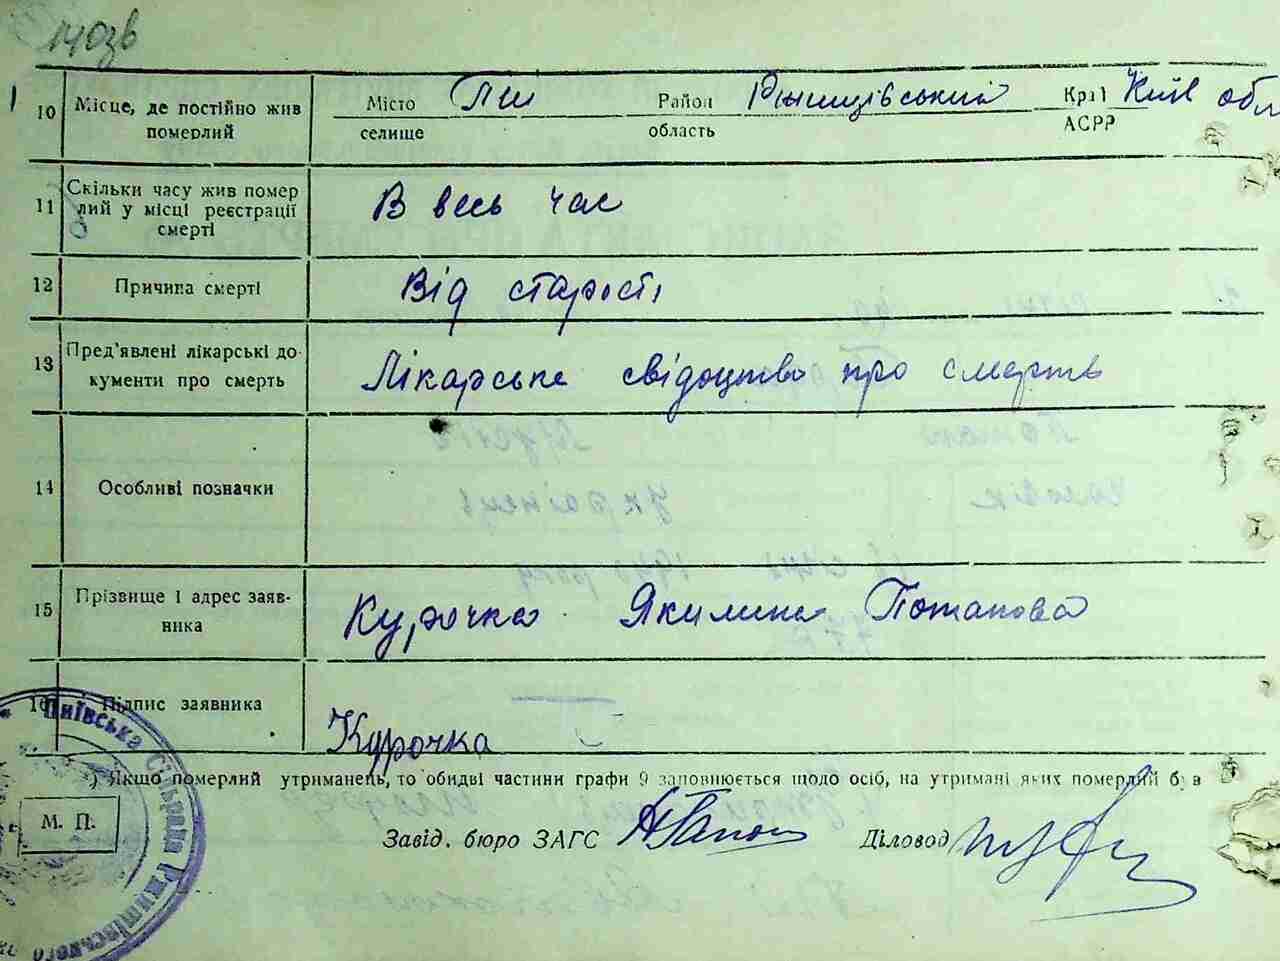 140зв
10 Місце, де постійно жив померлий
Місто Пии Район Ржищівський Край Київ обл
селище область АСРР
11 Скільки часу жив помер
лий у місці реєстрації
смерті
В весь час
12 Причина смерті Від старості
13 Пред'явлені лікарські до-
кументи про смерть
Лікарське свідоцтво про смерть
14 Особливі позначки
15 Прізвище і адрес заяв-
ника
Курочка Якилина Потапова
16 Підпис заявника
Курочка
) Якщо померлий утриманець, то обидві частини графи 9 заповнюється щодо осіб, на утримані яких померлий був
М. П.
Завід. бюро ЗАГС Діловод
Пиївська Сільрада Ржищівського